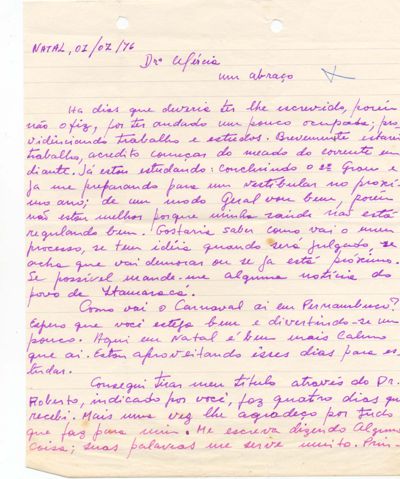 NATAL, 01/02/76
Drª Mércia
um abraço
Ha dias que deveria ter lhe escrevido, porém
não o fiz, por ter andado um pouco ocupado; pro-
vidênciando trabalho e estudos. Brevemente estarei
trabalho, acredito começar do meado do corrente em
diante. Já estou estudando: concluindo o 2º Grau e
ja me preparando para um vestibular no proxi-
mo ano; de um modo Geral vou bem, porém
não estou melhor porque minha saúde não está
regulando bem. Gostaria saber como vai o meu
processo, se tem idéia quando será julgado, se
acha que vai demorar ou se ja está próximo.
Se possivel mande-me alguma notícia do
povo de Itamaracá.
Como vai o Carnaval ai em Pernambuco?
Espero que você esteja bem e divertindo-se um
pouco. Aqui em Natal é bem mais Calmo
que ai. Estou aproveitando esses dias para es-
tudar.
Consegui tirar meu titulo através do Dr.
Roberto, indicado por você, faz quatro dias que
recebi. Mais uma vez lhe agradeço por tudo
que faz para mim. Me escreva dizendo Alguma
Coisa; suas palavras me serve muito. Prin-